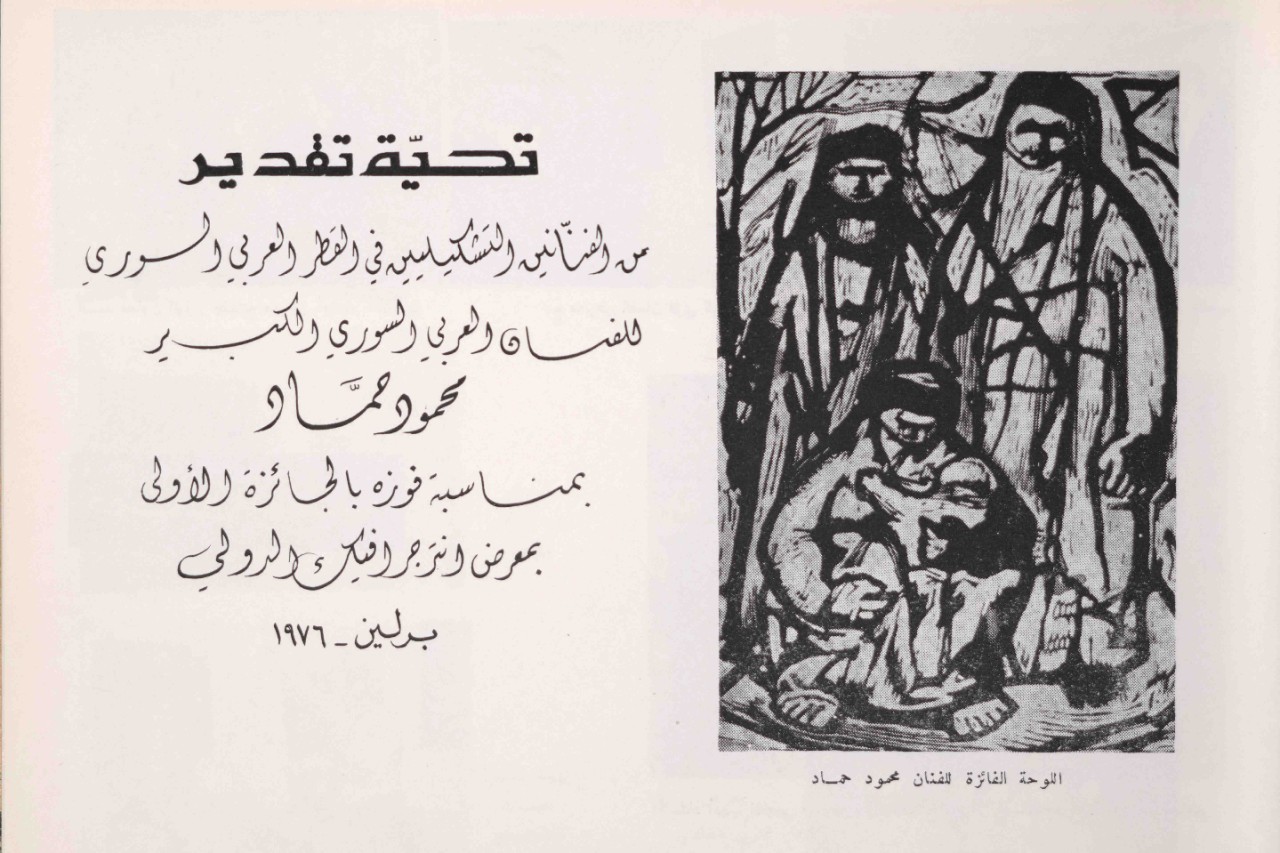 تحيّة تقدير
من الفنّانين التشكيليين في القطر العربي السوري
للفنان العربي السوري الكبير
محمود حمَّاد
بمناسبة فوزه بالجائزة الأولى
بمعرض انترجرافيك الدولي
برلين - ١٩٧٦
اللوحة الفائزة للفنان محمود حماد